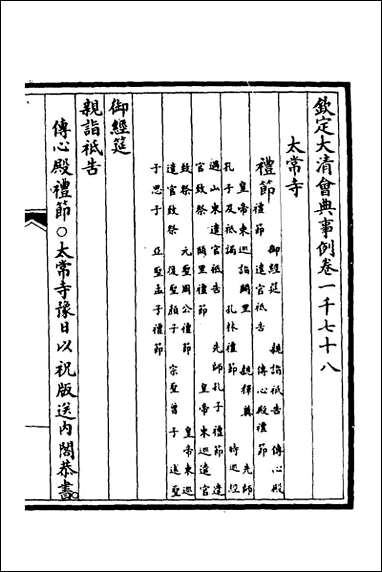 欽定大清會典事例卷一千七十八
太常寺
禮節
御經筵 親詣祗告 傳心殿
禮節 遣官祗告 傳心殿禮節
皇帝東巡詣闕里 親釋奠 先師
孔子及祗謁 孔林禮節 時巡經
過山東遣官祗告 先師孔子禮節 遣
官致祭 闕里禮節 皇帝東巡遣官
致祭 元聖周公禮節 皇帝東巡
遣官致祭 復聖顏子 宗聖曾子 述聖
子思子 亞聖孟子禮節
御經筵
親詣祗告
傳心殿禮節○太常寺豫日以祝版送内閣恭書